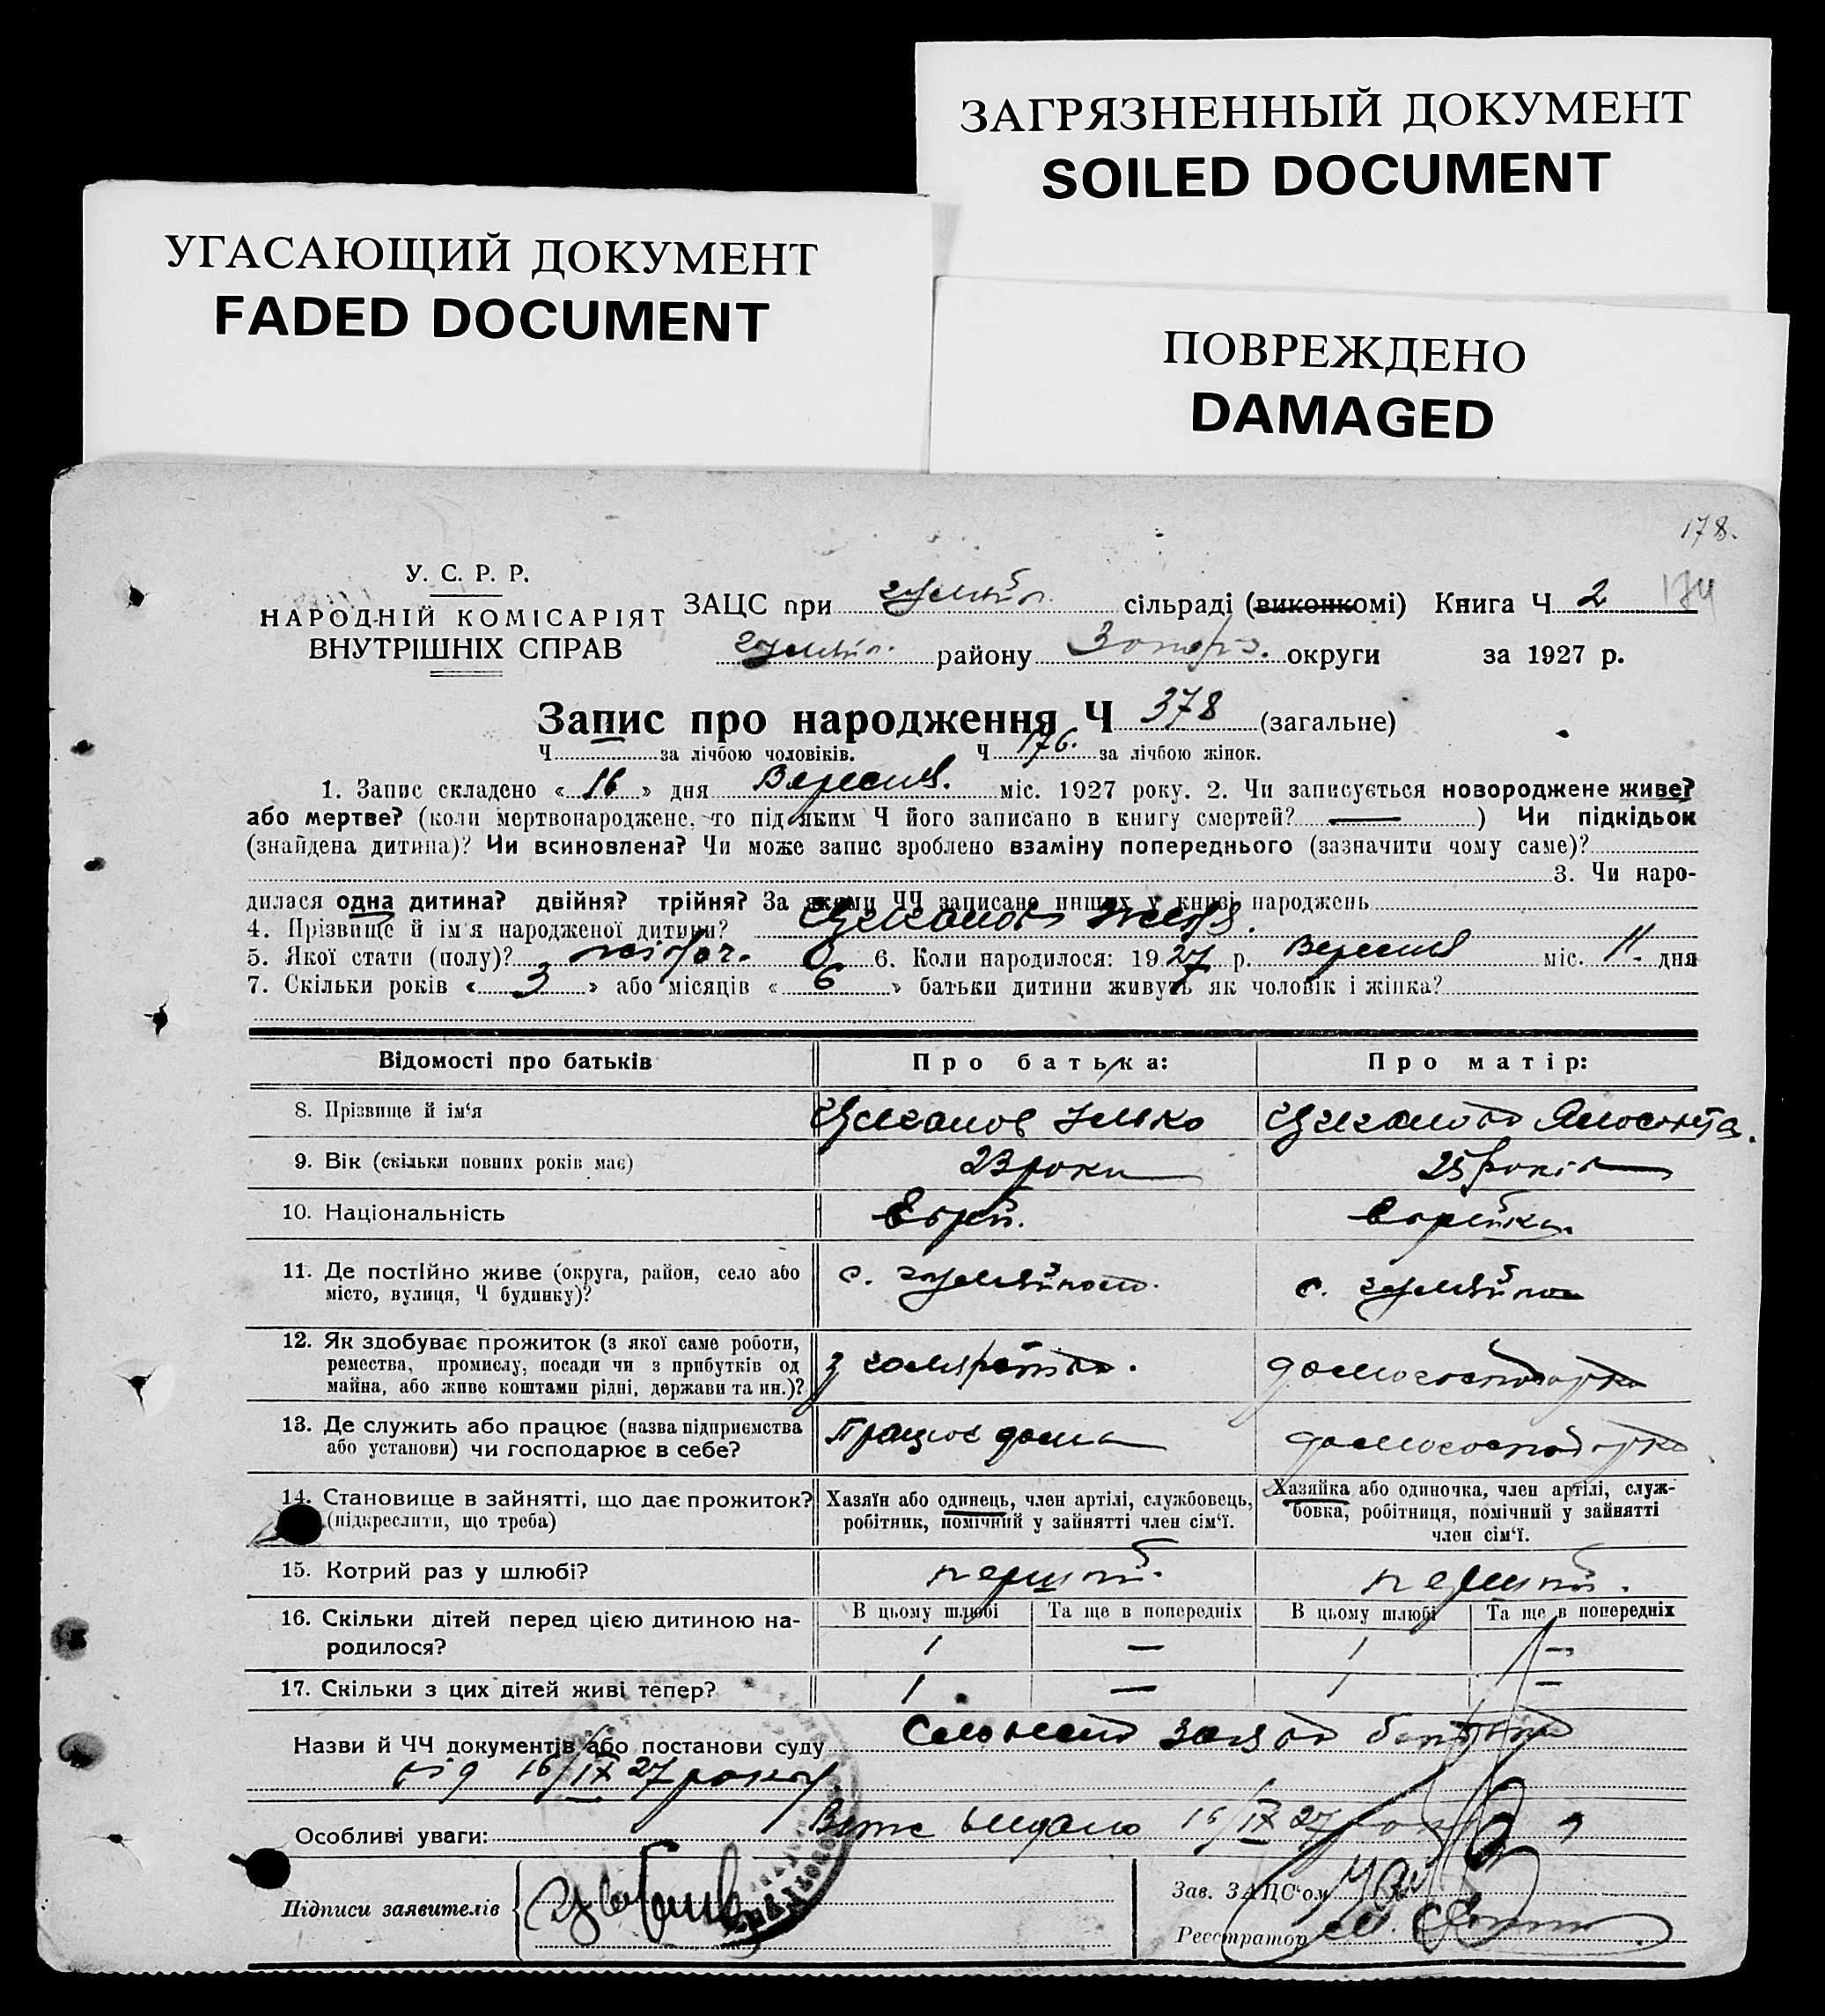 ЗАГРЯЗНЕННЫЙ ДОКУМЕНТ
SOILED DOCUMENT
УГАСАЮЩИЙ ДОКУМЕНТ
FADED DOCUMENT
ПОВРЕЖДЕНО
DAMAGED
178.
174
У. С. Р. Р.
НАРОДНІЙ КОМІСАРІЯТ
ВНУТРІШНІХ СПРАВ
ЗАЦС при гуляйп. сільраді (виконкомі) Книга Ч 2
гуляйп. району Запоріз. округи за 1927 р.
Запис про народження Ч 378 (загальне)
Ч за лічбою чоловіків. Ч 176. за лічбою жінок.
1. Запис складено « 16 » дня Вересня. міс. 1927 року. 2. Чи записується новороджене живе?
або мертве? (коли мертвонароджене, то під яким Ч його записано в книгу смертей? — ) Чи підкідьок
(знайдена дитина)? Чи всиновлена? Чи може запис зроблено взаміну попереднього (зазначити чому саме)?
3. Чи наро-
дилася одна дитина? двійня? трійня? За якими ЧЧ записано инших у книзі народжень
4. Прізвище й ім'я народженої дитини? Циганова
5. Якої стати (полу)? жіноч. 6. Коли народилося: 1927 р. Вересня міс. 11 дня
7. Скільки років « 3 » або місяців « 6 » батьки дитини живуть як чоловік і жінка?
Відомості про батьків Про батька: Про матір:
8. Прізвище й ім'я Циганов Ілько Циганова
9. Вік (скільки повних років має) 23 роки 25 років
10. Національність Еврей. Еврейка
11. Де постійно живе (округа, район, село або
місто, вулиця, Ч будинку)? с. гуляйполе. с. гуляйполе
12. Як здобуває прожиток (з якої саме роботи,
ремества, промислу, посади чи з прибутків од
майна, або живе коштами рідні, держави та ин.)? з домогосподарка
13. Де служить або працює (назва підприємства
або установи) чи господарює в себе? Працює дома домогосподарка
14. Становище в зайнятті, що дає прожиток?
(підкреслити, що треба)
Хазяїн або одинець, член артілі, службовець,
робітник, помічний у зайнятті член сім'ї.
Хазяйка або одиночка, член артілі, служ-
бовка, робітниця, помічний у зайнятті
член сім'ї.
15. Котрий раз у шлюбі? перший. перший.
16. Скільки дітей перед цією дитиною на-
родилося?
В цьому шлюбі Та ще в попередніх В цьому шлюбі Та ще в попередніх
1 — 1 —
17. Скільки з цих дітей живі тепер? 1 — 1 —
Назви й ЧЧ документів або постанови суду Словесна заява батька
від 16/IX 27 року.
Особливі уваги: Витяг видано 16/IX 27 року
Підписи заявителів
Зав. ЗАЦС'ом
Реєстратор